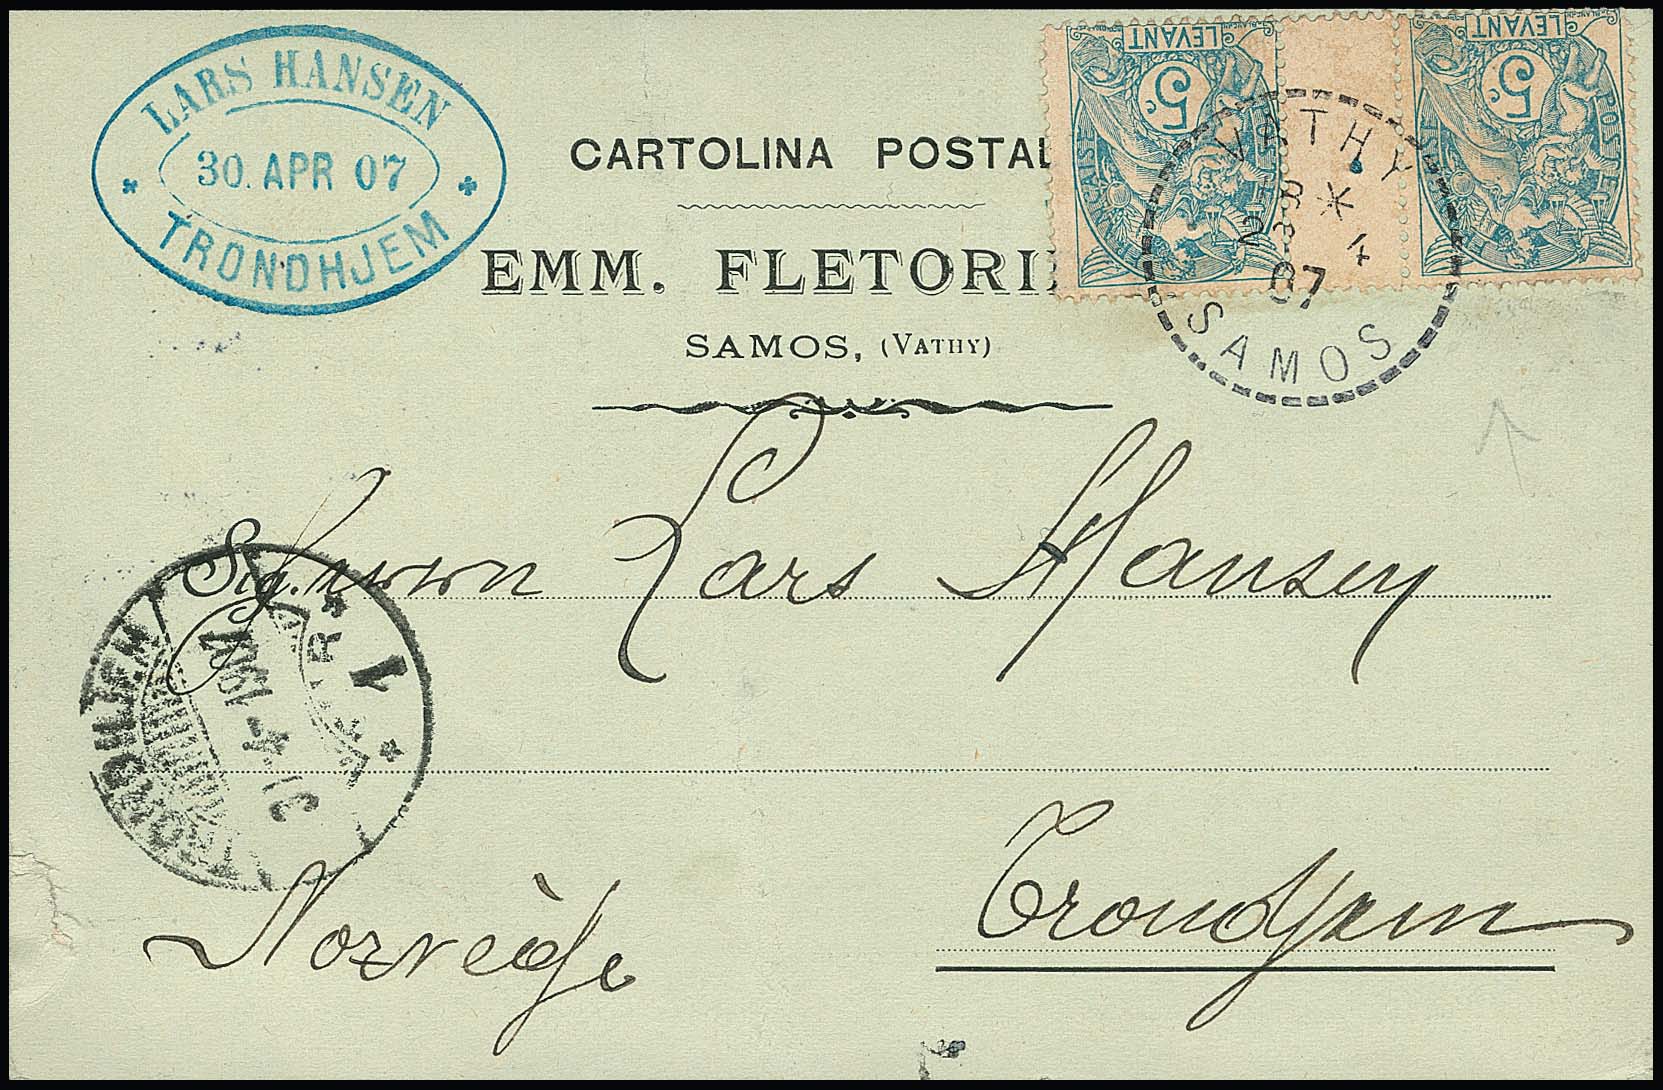 LARS HANSEN
30. APR 07
TRONDHJEM
CARTOLINA POSTAL
EMM. FLETORI
SAMOS, (VATHY)
LEVANT
5c
POSTE
LEVANT
5c
POSTE
VATHY
2
4
07
SAMOS
Sig. Lars Hansen
Trondjem
Norvège
TRONDHJEM
30 4-1907
I